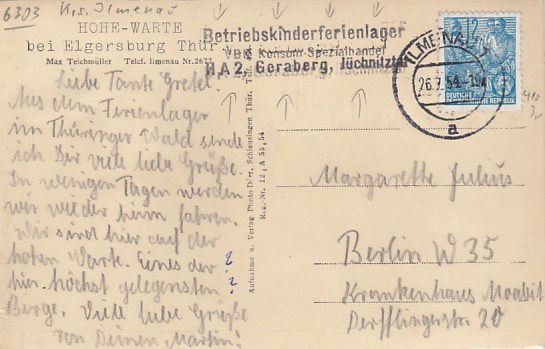 6303 Krs. Ilmenau
HOHE-WARTE
bei Elgersburg Thür.
Max Teichmüller Telef. Ilmenau Nr. 2677
Liebe Tante Gretel.
Aus dem Ferienlager
im Thüringer Wald sende
ich Dir viele liebe Grüße.
In wenigen Tagen werden
wir wieder heim fahren.
Wir sind hier auf der
hohen Warte. Eines der
hier höchst gelegensten
Berge. Viele liebe Grüße
von Deinen Martin!
Aufnahme u. Verlag Photo-Dörr, Schleusingen Thür.
Reg.-Nr. 12, A 55, 54
Betriebskinderferienlager
VDK Konsum Spezialhandel
HA 2, Geraberg, Jüchnitztal
ILMENAU
26.7.54
a
12
DEUTSCHE
DEMOKRATISCHE REPUBLIK
Margarethe Julius
Berlin W 35
Krankenhaus Moabit
Derfflingerstr. 20